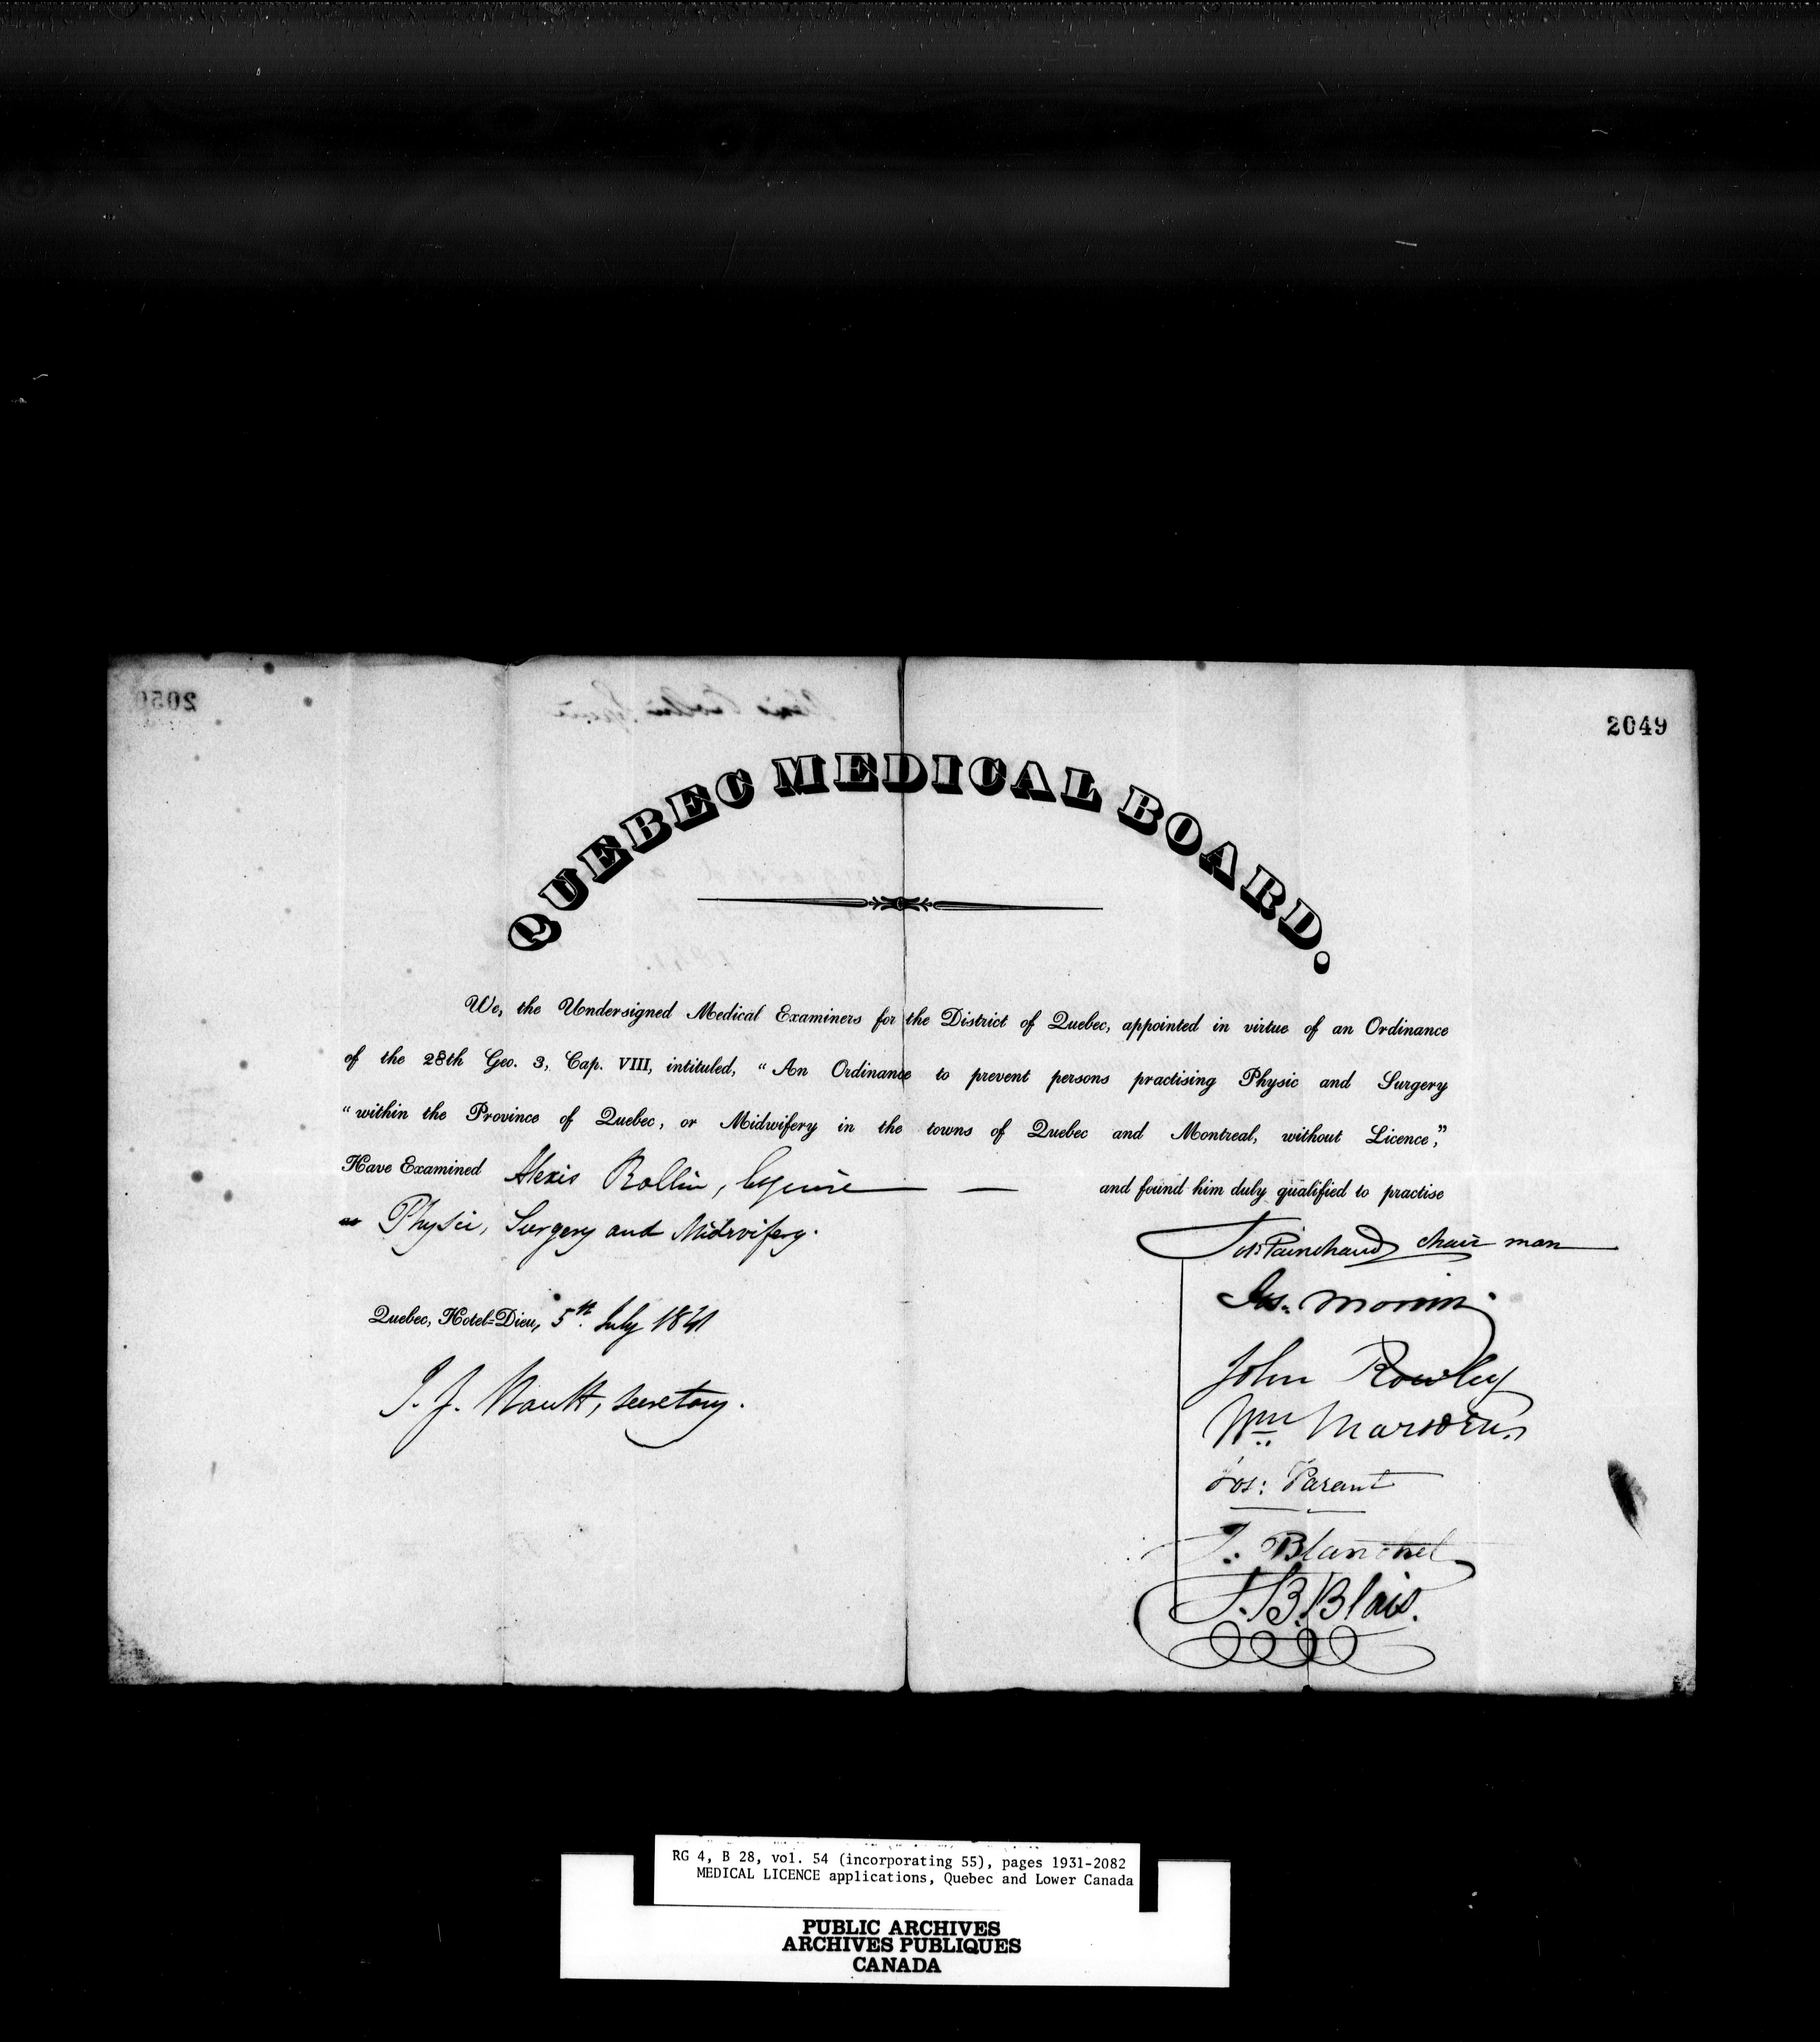 2049
QUEBEC MEDICAL BOARD.
We, the Undersigned Medical Examiners for the District of Quebec, appointed in virtue of an Ordinance
of the 28th Geo. 3, Cap. VIII, intituled, "An Ordinance to prevent persons practising Physic and Surgery
"within the Province of Quebec, or Midwifery in the towns of Quebec and Montreal, without Licence,"
Have Examined Alexis Rollin, Esquire and found him duly qualified to practise
Physic, Surgery and Midwifery.
Jos. Painchaud chairman
Quebec, Hotel-Dieu, 5th. July 1841
Jos. Morrin
John Rowley
J. Z. Nault, secretary.
Wm Marsden
Jos: Parant
J. Blanchet
J. B. Blais.
RG 4, B 28, vol. 54 (incorporating 55), pages 1931-2082
MEDICAL LICENCE applications, Quebec and Lower Canada
PUBLIC ARCHIVES
ARCHIVES PUBLIQUES
CANADA